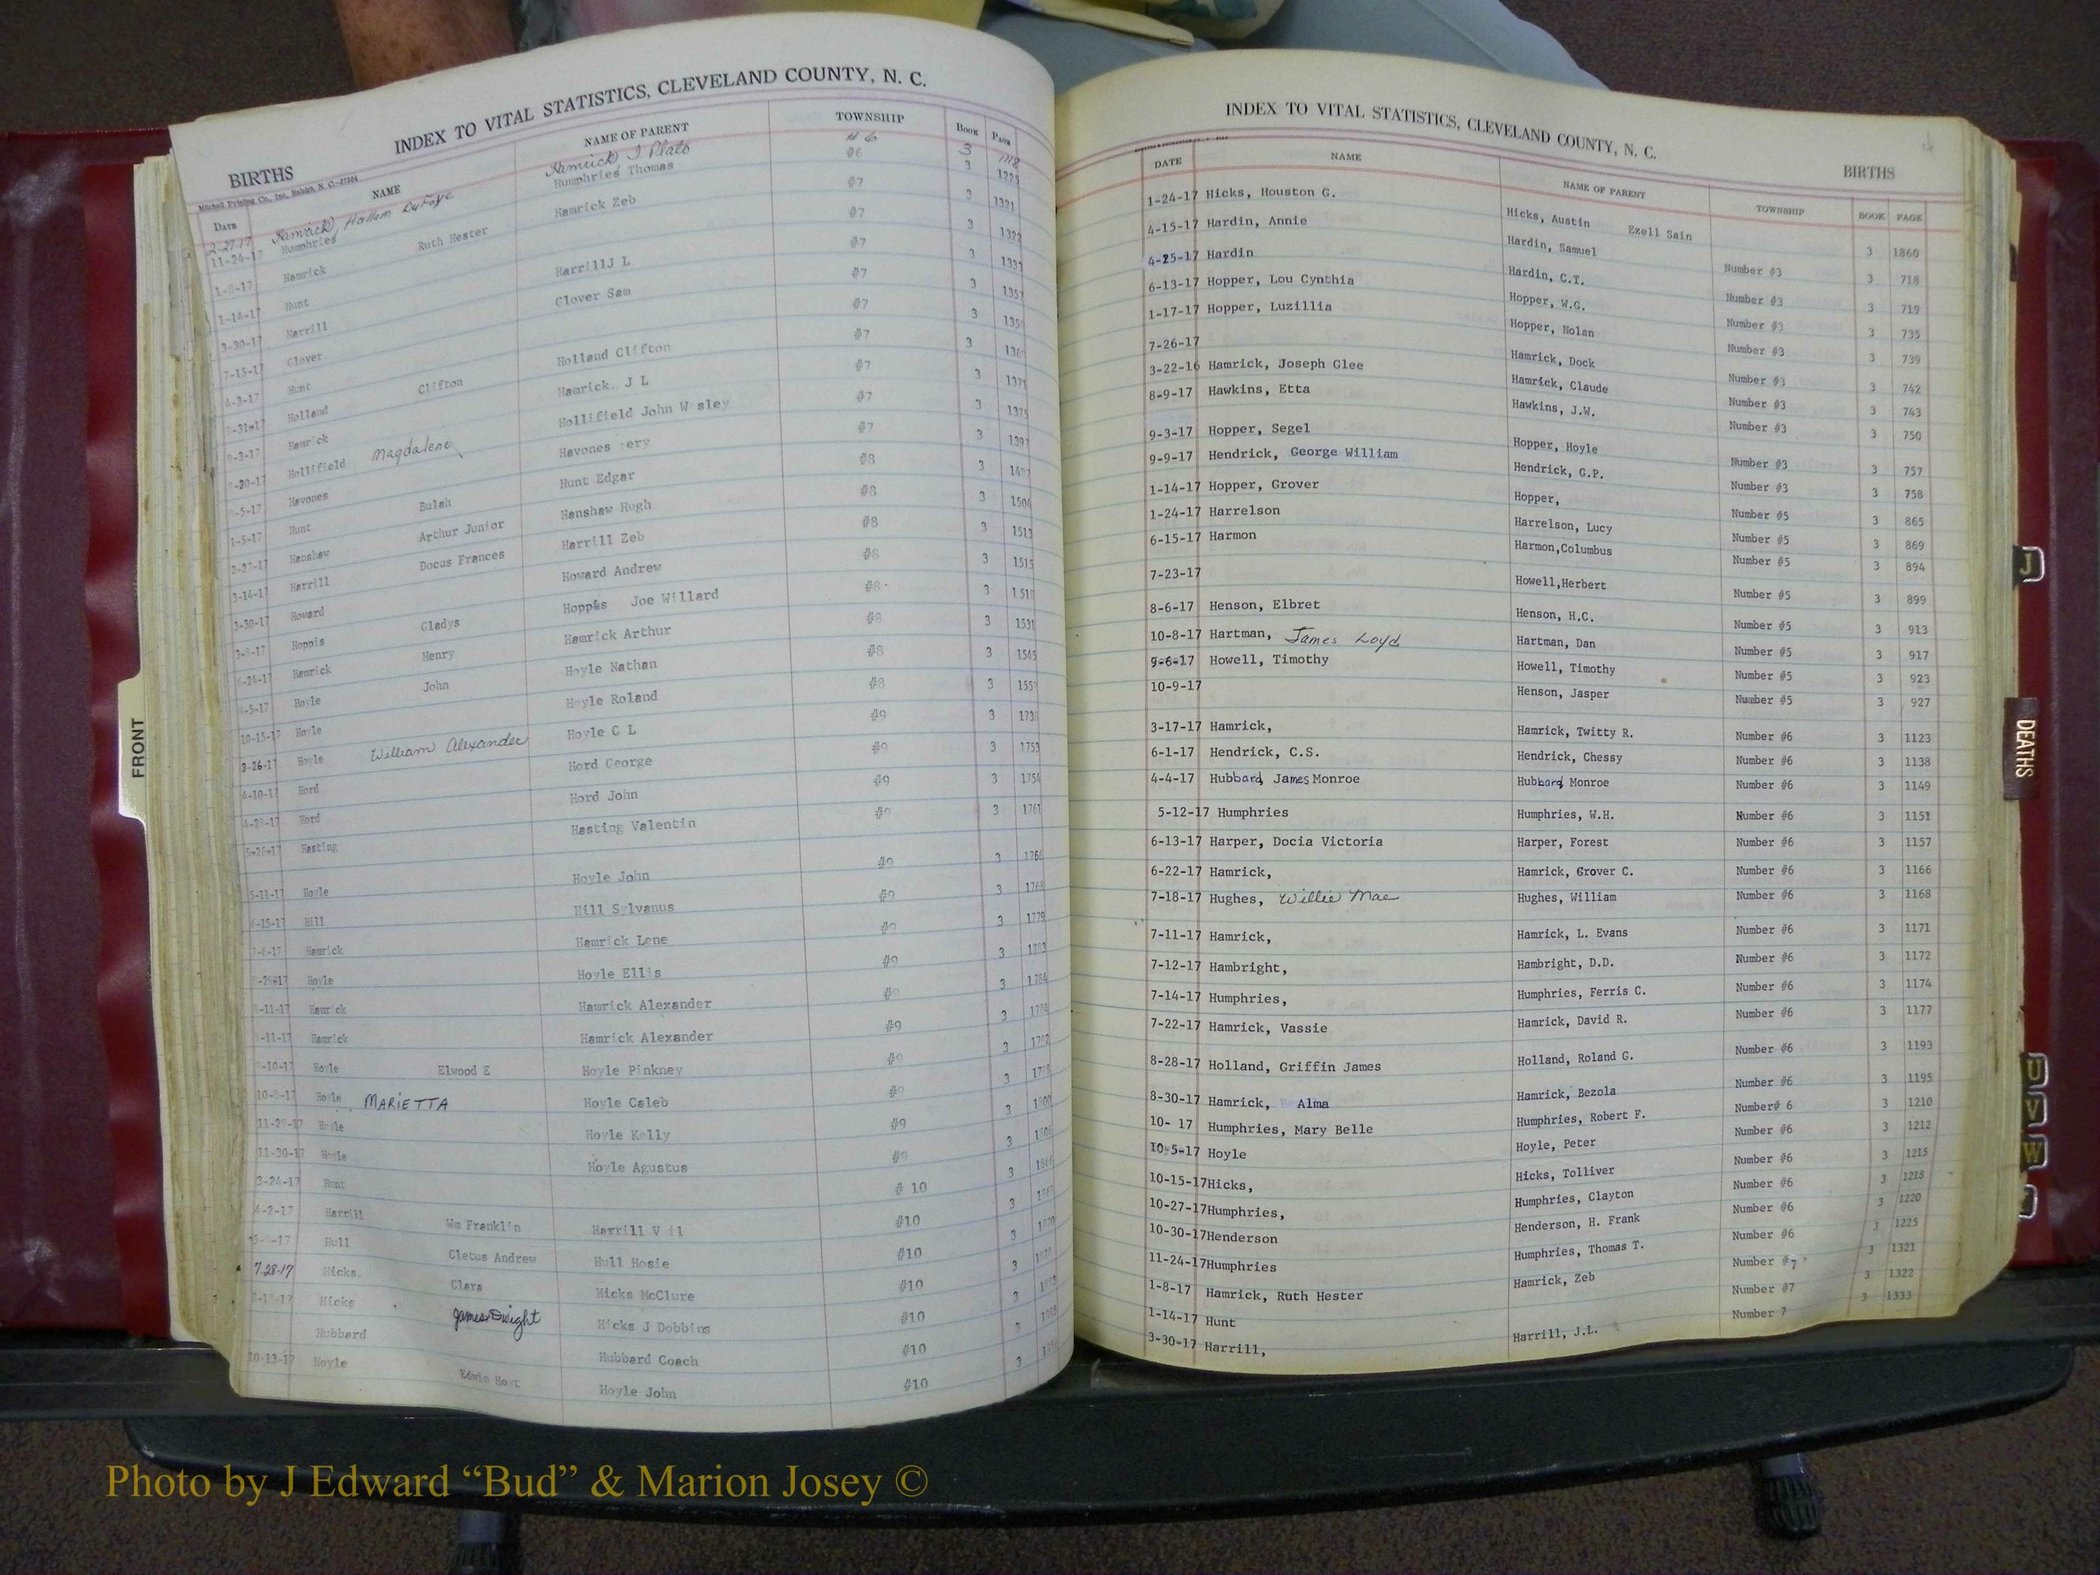 INDEX TO VITAL STATISTICS, CLEVELAND COUNTY, N. C.
BIRTHS
Mitchell Printing Co., Inc., Raleigh, N. C.
DATE NAME NAME OF PARENT TOWNSHIP BOOK PAGE
2-27-17 Hamrick, Hamrick J Plato #6 3
11-24-17 Humphries Humphries Thomas #6 3 1225
1-8-17 Hamrick Ruth Hester Hamrick Zeb #7 3 1321
1-14-17 Hunt #7 3 1322
3-30-17 Harrill Harrill J L #7 3
7-15-17 Glover Glover Sam #7 3
4-3-17 Hunt #7 3
8-31-17 Holland Clifton Holland Clifton #7 3
9-3-17 Hamrick Hamrick, J L #7 3 1371
9-20-17 Hollifield Magdalene Hollifield John W sley #7 3 1375
Havones Havones #7 3
1-5-17 Hunt Bulah Hunt Edgar #8 3
2-27-17 Henshaw Arthur Junior Henshaw Hugh #8 3 1504
3-14-17 Harrill Docus Frances Harrill Zeb #8 3 1513
3-30-17 Howard Howard Andrew #8 3 1515
Hoppis Gladys Hoppes Joe Willard #8 3
6-24-17 Hamrick Henry Hamrick Arthur #8 3 1531
Hoyle John Hoyle Nathan #8 3 1545
10-15-17 Hoyle Hoyle Roland #8 3
3-26-17 Hoyle William Alexander Hoyle C L #9 3
4-10-17 Hord Hord George #9 3 1753
Hord Hord John #9 3 1754
Hasting Hasting Valentin #9 3 1761
5-11-17 Hoyle Hoyle John #9 3 1766
6-15-17 Hill Hill Sylvanus #9 3 1768
7-6-17 Hamrick Hamrick Lene #9 3 1779
Hoyle Hoyle Ellis #9 3 1783
Hamrick Hamrick Alexander #9 3 1784
Hamrick Hamrick Alexander #9 3
Hoyle Elwood E Hoyle Pinkney #9 3
Hoyle, MARIETTA Hoyle Caleb #9 3
Hoyle Hoyle Kelly #9 3
11-30-17 Hoyle Hoyle Agustus #9 3
3-24-17 Hunt #10 3
4-2-17 Harrill Wm Franklin Harrill #10 3
Hull Cletus Andrew Hull Hosie #10 3
7-28-17 Hicks, Clara Hicks McClure #10 3
Hicks James Dwight Hicks J Dobbins #10 3
Hubbard Hubbard Coach #10 3
10-13-17 Hoyle Edwin Hoyt Hoyle John #10
INDEX TO VITAL STATISTICS, CLEVELAND COUNTY, N. C.
BIRTHS
DATE NAME NAME OF PARENT TOWNSHIP BOOK PAGE
1-24-17 Hicks, Houston G. Hicks, Austin Ezell Sain 3 1860
4-15-17 Hardin, Annie Hardin, Samuel Number #3 3 718
4-25-17 Hardin Hardin, C.T. Number #3 3 719
6-13-17 Hopper, Lou Cynthia Hopper, W.G. Number #3 3 735
1-17-17 Hopper, Luzillia Hopper, Nolan Number #3 3 739
7-26-17 Hamrick, Dock Number #3 3 742
3-22-16 Hamrick, Joseph Glee Hamrick, Claude Number #3 3 743
8-9-17 Hawkins, Etta Hawkins, J.W. Number #3 3 750
9-3-17 Hopper, Segel Hopper, Hoyle Number #3 3 757
9-9-17 Hendrick, George William Hendrick, G.P. Number #3 3 758
1-14-17 Hopper, Grover Hopper, Number #5 3 865
1-24-17 Harrelson Harrelson, Lucy Number #5 3 869
6-15-17 Harmon Harmon,Columbus Number #5 3 894
7-23-17 Howell,Herbert Number #5 3 899
8-6-17 Henson, Elbret Henson, H.C. Number #5 3 913
10-8-17 Hartman, James Loyd Hartman, Dan Number #5 3 917
9-6-17 Howell, Timothy Howell, Timothy Number #5 3 923
10-9-17 Henson, Jasper Number #5 3 927
3-17-17 Hamrick, Hamrick, Twitty R. Number #6 3 1123
6-1-17 Hendrick, C.S. Hendrick, Chessy Number #6 3 1138
4-4-17 Hubbard, James Monroe Hubbard, Monroe Number #6 3 1149
5-12-17 Humphries Humphries, W.H. Number #6 3 1151
6-13-17 Harper, Docia Victoria Harper, Forest Number #6 3 1157
6-22-17 Hamrick, Hamrick, Grover C. Number #6 3 1166
7-18-17 Hughes, Willie Mae Hughes, William Number #6 3 1168
7-11-17 Hamrick, Hamrick, L. Evans Number #6 3 1171
7-12-17 Hambright, Hambright, D.D. Number #6 3 1172
7-14-17 Humphries, Humphries, Ferris C. Number #6 3 1174
7-22-17 Hamrick, Vassie Hamrick, David R. Number #6 3 1177
8-28-17 Holland, Griffin James Holland, Roland G. Number #6 3 1193
8-30-17 Hamrick, Alma Hamrick, Bezola Number #6 3 1195
10- 17 Humphries, Mary Belle Humphries, Robert F. Number# 6 3 1210
10-5-17 Hoyle Hoyle, Peter Number #6 3 1212
10-15-17 Hicks, Hicks, Tolliver Number #6 3 1215
10-27-17 Humphries, Humphries, Clayton Number #6 3 1218
10-30-17 Henderson Henderson, H. Frank Number #6 3 1220
11-24-17 Humphries Humphries, Thomas T. Number #6 3 1225
1-8-17 Hamrick, Ruth Hester Hamrick, Zeb Number #7 3 1321
1-14-17 Hunt Number #7 3 1322
3-30-17 Harrill, Harrill, J.L. Number 7 3 1333
FRONT
J
DEATHS
U
V
W
Photo by J Edward “Bud” & Marion Josey ©